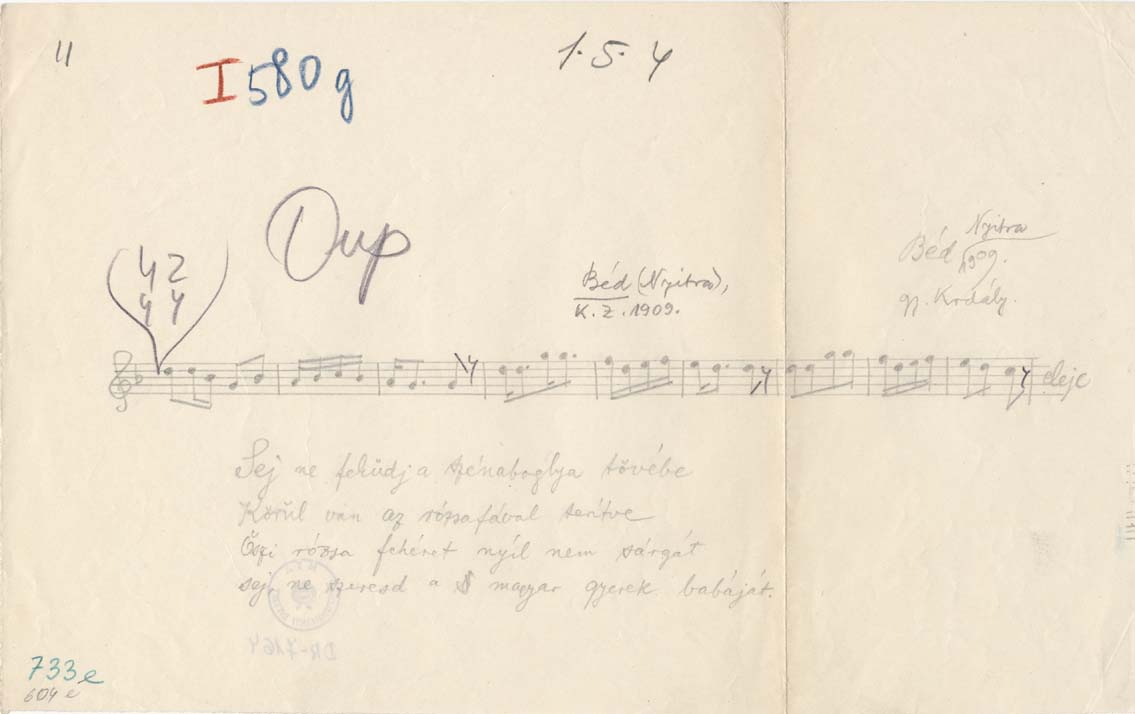 11
I 580 g
1. 5. 4
Dup
42
44
Béd (Nyitra),
K. Z. 1909.
Béd Nyitra
1909.
gy. Kodály.
eleje
Sej ne feküdj a szénaboglya tövébe
Körül van az rózsafával terítve
Őszi rózsa fehéret nyíl nem sárgát
sej, ne szeresd a magyar gyerek babáját.
733 e
604 e